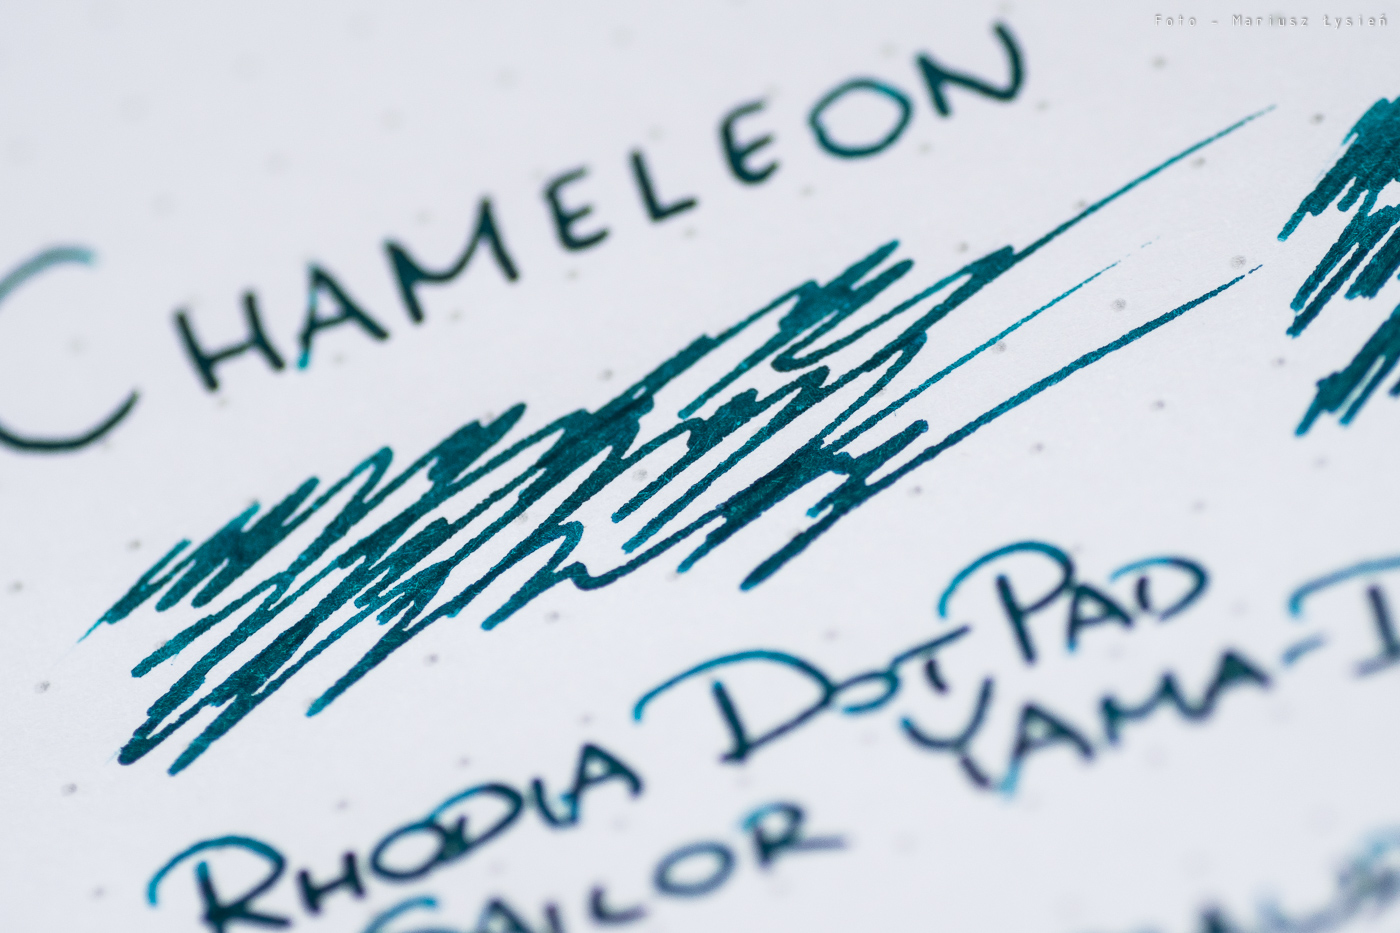 Foto - Mariusz Łysień
CHAMELEON
RHODIA DOT PAD
SAILOR YAMA-